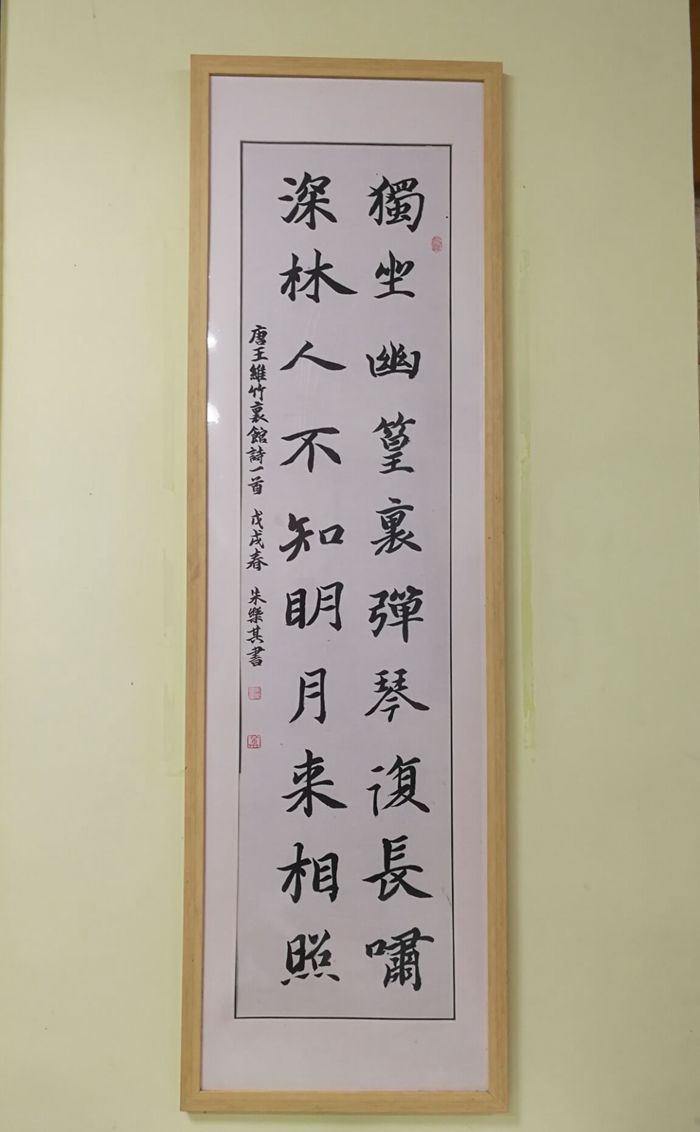 獨坐幽篁裏彈琴復長嘯
深林人不知明月来相照
唐王維竹裏館詩一首 戊戌春 朱樂其書